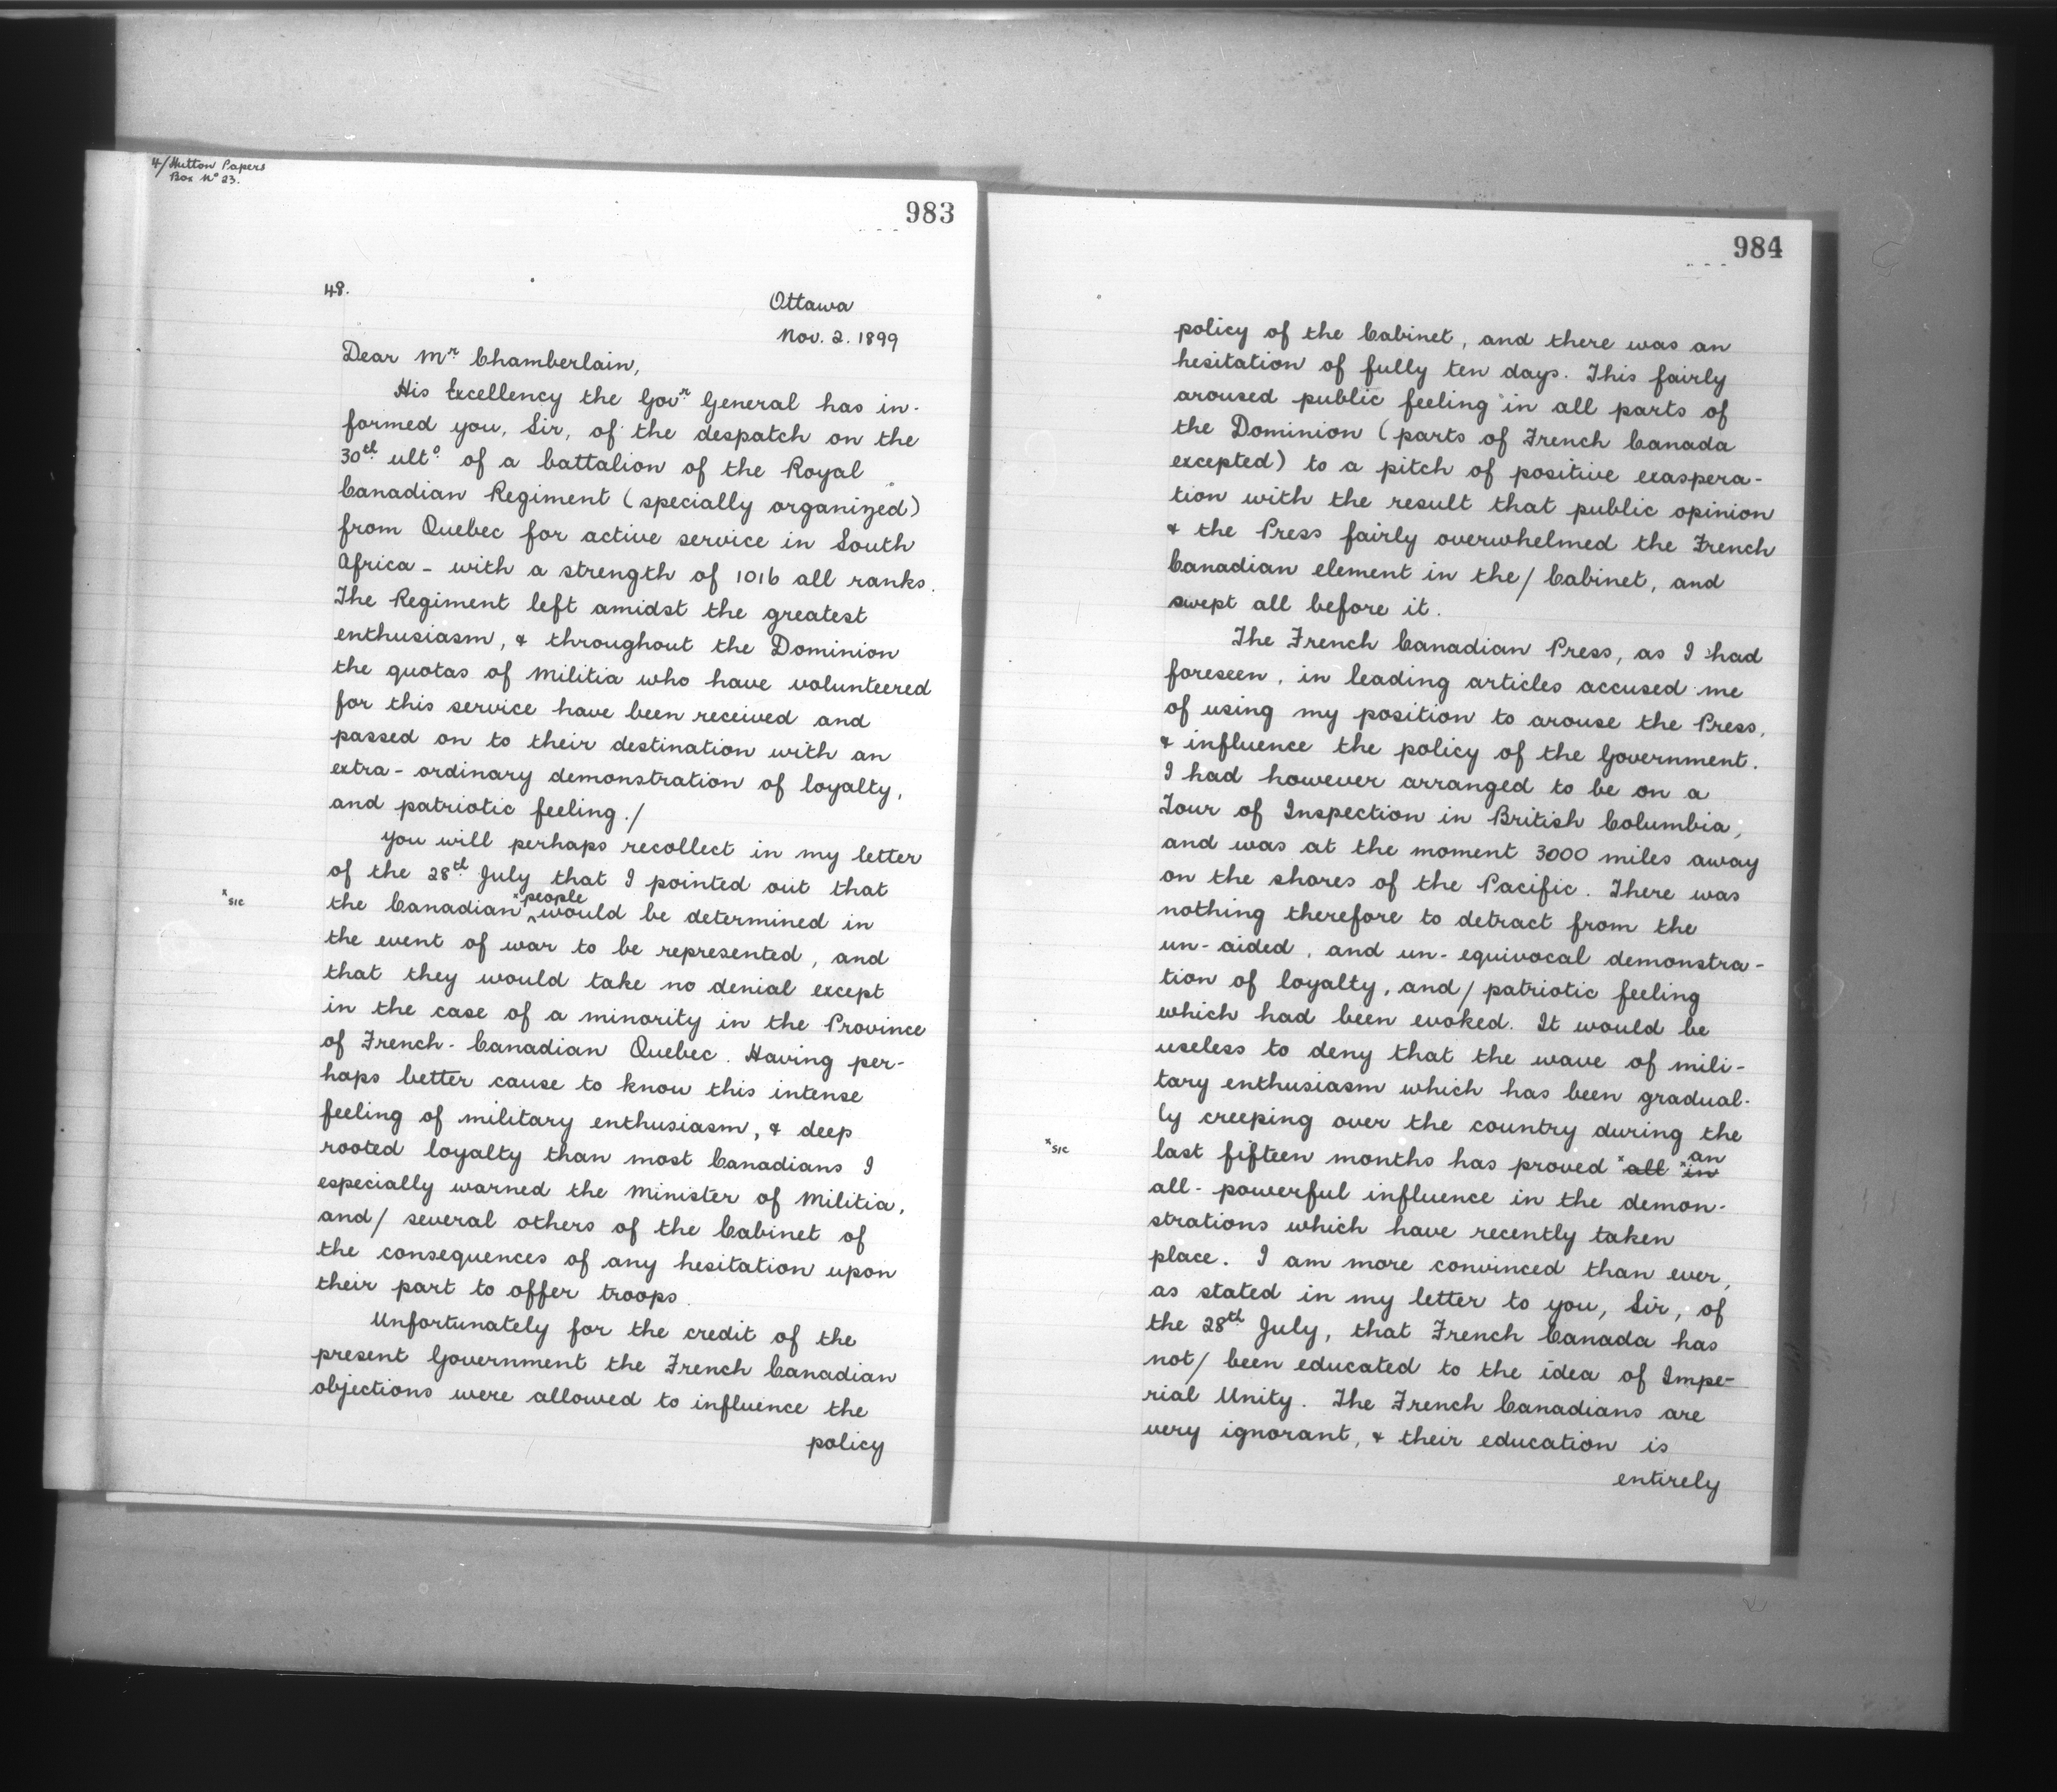 4/Hutton Papers
Box Nº 23.
983
48.
Ottawa
Nov. 2. 1899
Dear Mr. Chamberlain,
His Excellency the Govr. General has in-
formed you, Sir, of the despatch on the
30th ulto. of a battalion of the Royal
Canadian Regiment (specially organized)
from Quebec for active service in South
Africa - with a strength of 1016 all ranks.
The Regiment left amidst the greatest
enthusiasm, & throughout the Dominion
the quotas of Militia who have volunteered
for this service have been received and
passed on to their destination with an
extra-ordinary demonstration of loyalty,
and patriotic feeling./
You will perhaps recollect in my letter
of the 28th July that I pointed out that
x sic
the Canadian x people would be determined in
the event of war to be represented, and
that they would take no denial except
in the case of a minority in the Province
of French-Canadian Quebec. Having per-
haps better cause to know this intense
feeling of military enthusiasm, & deep
rooted loyalty than most Canadians I
especially warned the Minister of Militia,
and/ several others of the Cabinet of
the consequences of any hesitation upon
their part to offer troops.
Unfortunately for the credit of the
present Government the French Canadian
objections were allowed to influence the
policy
984
policy of the Cabinet, and there was an
hesitation of fully ten days. This fairly
aroused public feeling in all parts of
the Dominion (parts of French Canada
excepted) to a pitch of positive exaspera-
tion with the result that public opinion
& the Press fairly overwhelmed the French
Canadian element in the/ Cabinet, and
swept all before it.
The French Canadian Press, as I had
foreseen, in leading articles accused me
of using my position to arouse the Press,
& influence the policy of the Government.
I had however arranged to be on a
Tour of Inspection in British Columbia,
and was at the moment 3000 miles away
on the shores of the Pacific. There was
nothing therefore to detract from the
un-aided, and un-equivocal demonstra-
tion of loyalty, and/ patriotic feeling
which had been evoked. It would be
useless to deny that the wave of mili-
tary enthusiasm which has been gradual-
ly creeping over the country during the
x sic
last fifteen months has proved x all x in an
all-powerful influence in the demon-
strations which have recently taken
place. I am more convinced than ever,
as stated in my letter to you, Sir, of
the 28th July, that French Canada has
not/ been educated to the idea of Impe-
rial Unity. The French Canadians are
very ignorant, & their education is
entirely